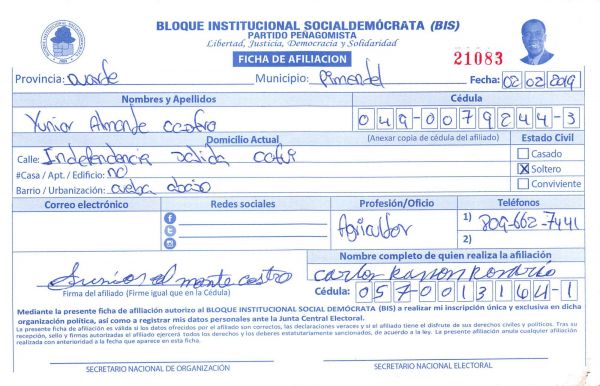 BLOQUE INSTITUCIONAL SOCIALDEMÓCRATA (BIS)
PARTIDO PEÑAGOMISTA
Libertad, Justicia, Democracia y Solidaridad
FICHA DE AFILIACION
21083
Provincia: Duarte Municipio: Pimentel Fecha: 02 02 2019
Nombres y Apellidos Cédula
Yunior Almonte castro 049-0079244-3
Domicilio Actual (Anexar copia de cédula del afiliado) Estado Civil
Calle: Independencia salida
Casado
#Casa / Apt. / Edificio: no
X Soltero
Barrio / Urbanización: abajo
Conviviente
Correo electrónico Redes sociales Profesión/Oficio Teléfonos
Agricultor 1) 809-662-7441
2)
Nombre completo de quien realiza la afiliación
Junior almonte castro Carlos Ramon Rosario
Firma del afiliado (Firme igual que en la Cédula) Cédula: 057-0013164-1
Mediante la presente ficha de afiliación autorizo al BLOQUE INSTITUCIONAL SOCIAL DEMÓCRATA (BIS) a realizar mi inscripción única y exclusiva en dicha
organización política, así como a registrar mis datos personales ante la Junta Central Electoral.
La presente ficha de afiliación es válida si los datos ofrecidos por el afiliado son correctos, las declaraciones veraces y si el afiliado tiene el disfrute de sus derechos civiles y políticos. Tras su
recepción, sello y firmas autorizadas el afiliado ejercerá todos los derechos y los deberes estatutariamente sancionados, de acuerdo a la ley. La presente afiliación anula cualquier afiliación
realizada con anterioridad a la fecha que aparece en esta ficha.
SECRETARIO NACIONAL DE ORGANIZACIÓN SECRETARIO NACIONAL ELECTORAL